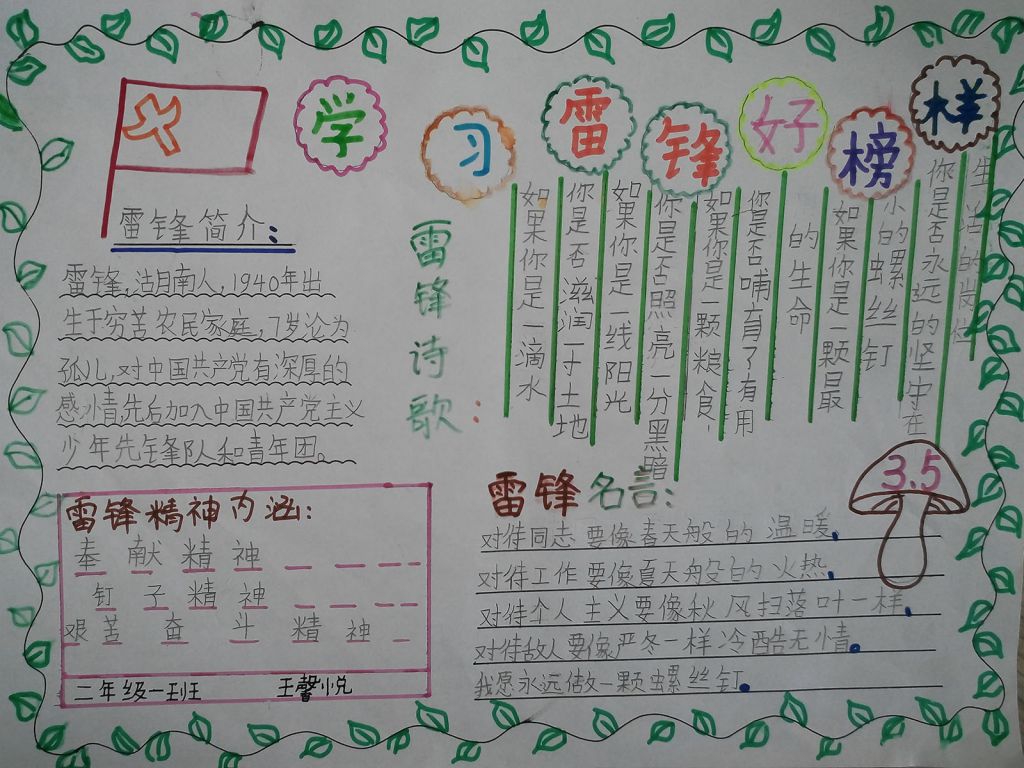 学习雷锋好榜样
雷锋简介:
雷锋,湖南人,1940年出
生于穷苦农民家庭,7岁沦为
孤儿,对中国共产党有深厚的
感情,先后加入中国共产党主义
少年先锋队和青年团。
雷锋诗歌:
如果你是一滴水
你是否滋润一寸土地
如果你是一线阳光
你是否照亮一分黑暗
如果你是一颗粮食
你是否哺育了有用
的生命
如果你是一颗最
小的螺丝钉
你是否永远的坚守在
生活的岗位
雷锋精神内涵:
奉献精神
钉子精神
艰苦奋斗精神
二年级一班 王馨悦
雷锋名言:
对待同志要像春天般的温暖.
对待工作要像夏天般的火热.
对待个人主义要像秋风扫落叶一样.
对待敌人要像严冬一样冷酷无情.
我愿永远做一颗螺丝钉.
3.5